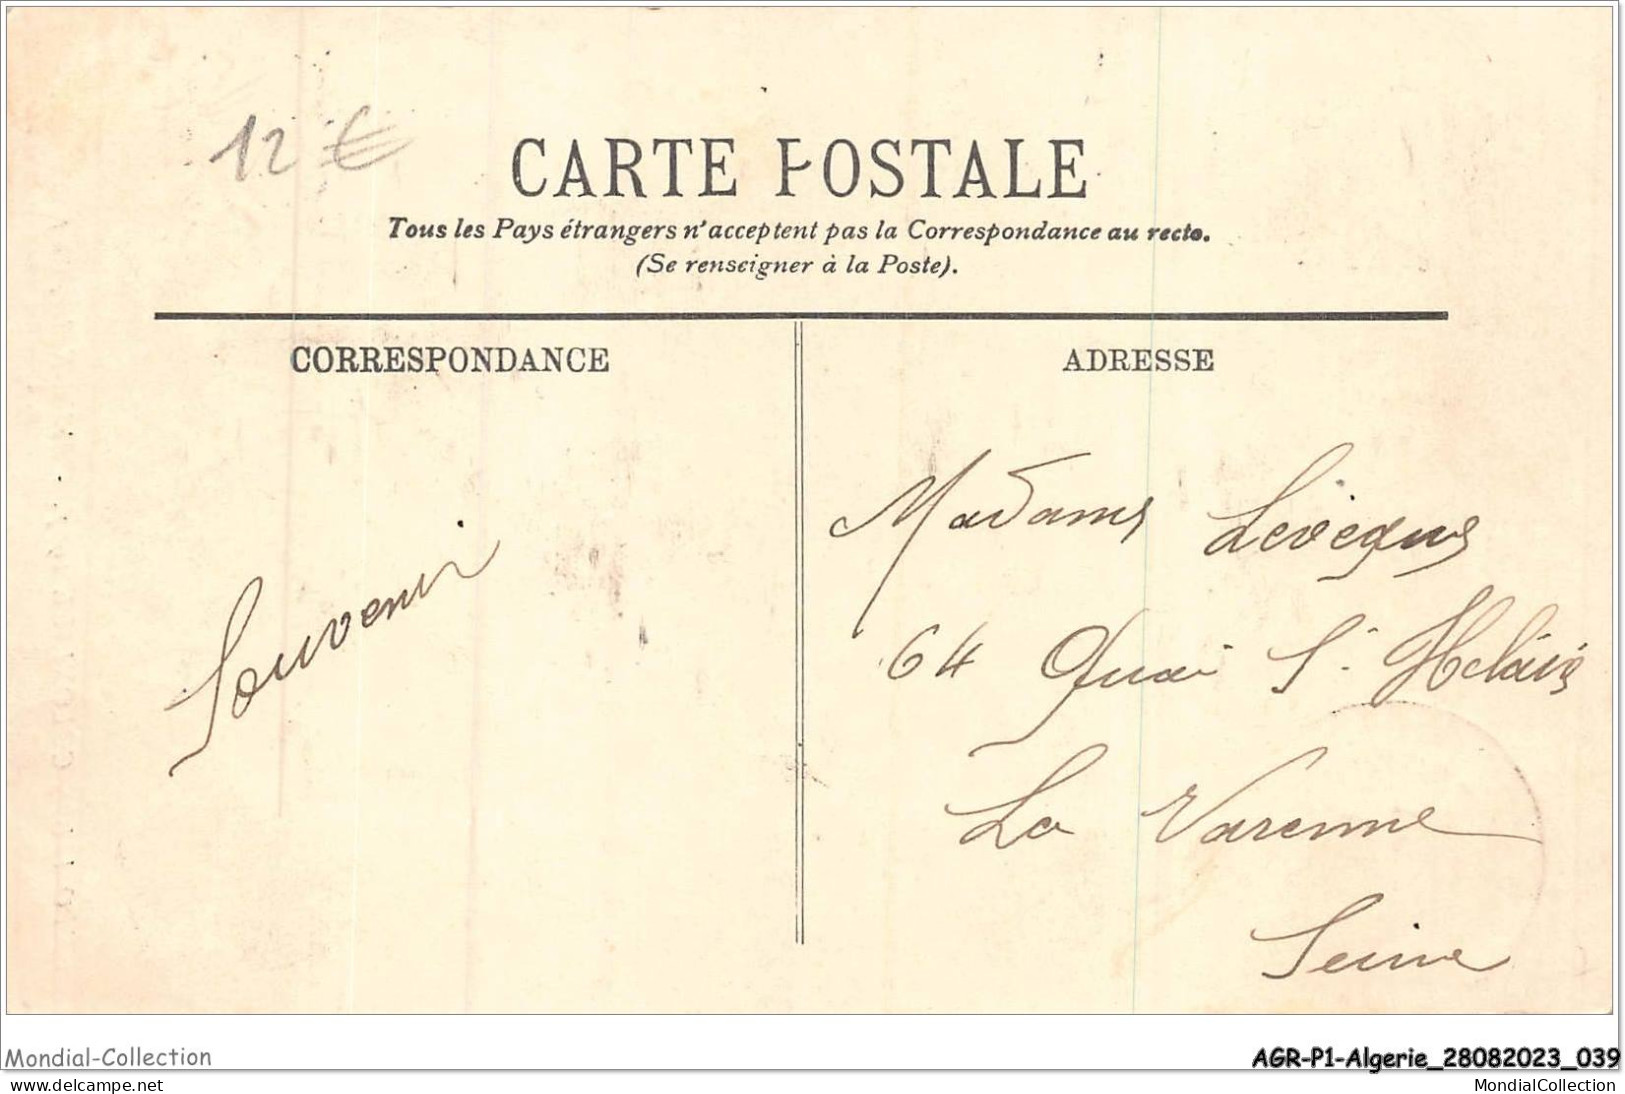 12 €
CARTE POSTALE
Tous les Pays étrangers n'acceptent pas la Correspondance au recto.
(Se renseigner à la Poste).
CORRESPONDANCE
ADRESSE
Souvenir
Madame Leveque
64 Quai St Helaire
La Varenne
Seine
Mondial-Collection
AGR-P1-Algerie_28082023_039
delcampe.net
MondialCollection